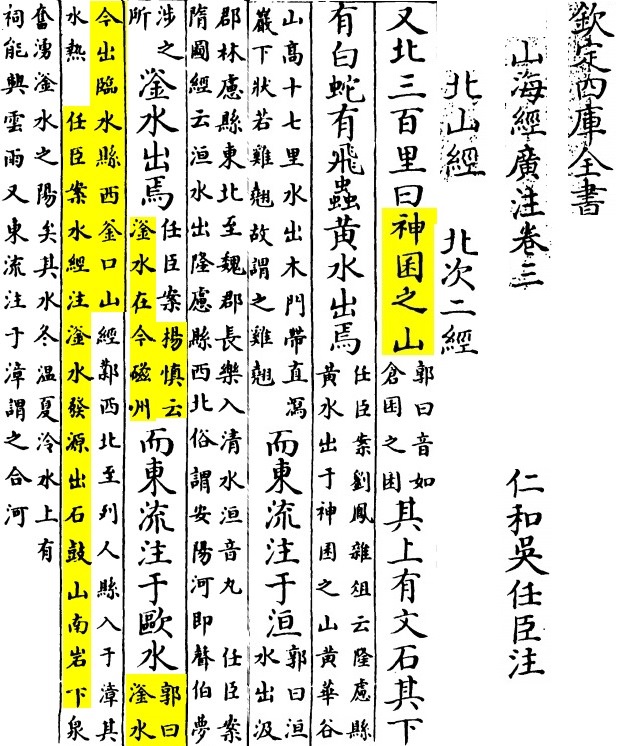 欽定四庫全書
山海經廣注卷三
仁和吳任臣注
北山經 北次二經
又北三百里曰神囷之山
郭曰音如
倉囷之囷
其上有文石其下
有白蛇有飛蟲黃水出焉
任臣案劉鳳雜俎云隆慮縣
黃水出于神囷之山黃華谷
山高十七里水出木門帶直瀉
巖下狀若雞翹故謂之雞翹
而東流注于洹
郭曰洹
水出汲
郡林慮縣東北至魏郡長樂入清水洹音丸 任臣案
隋圖經云洹水出隆慮縣西北俗謂安陽河即聲伯夢
涉之
所
滏水出焉
任臣案揚慎云
滏水在今磁州
而東流注于歐水
郭曰
滏水
今出臨水縣西釜口山經鄴西北至列人縣入于漳其
水熱 任臣案水經注滏水發源出石鼓山南岩下泉
奮湧滏水之陽矣其水冬溫夏冷水上有
祠能興雲雨又東流注于漳謂之合河